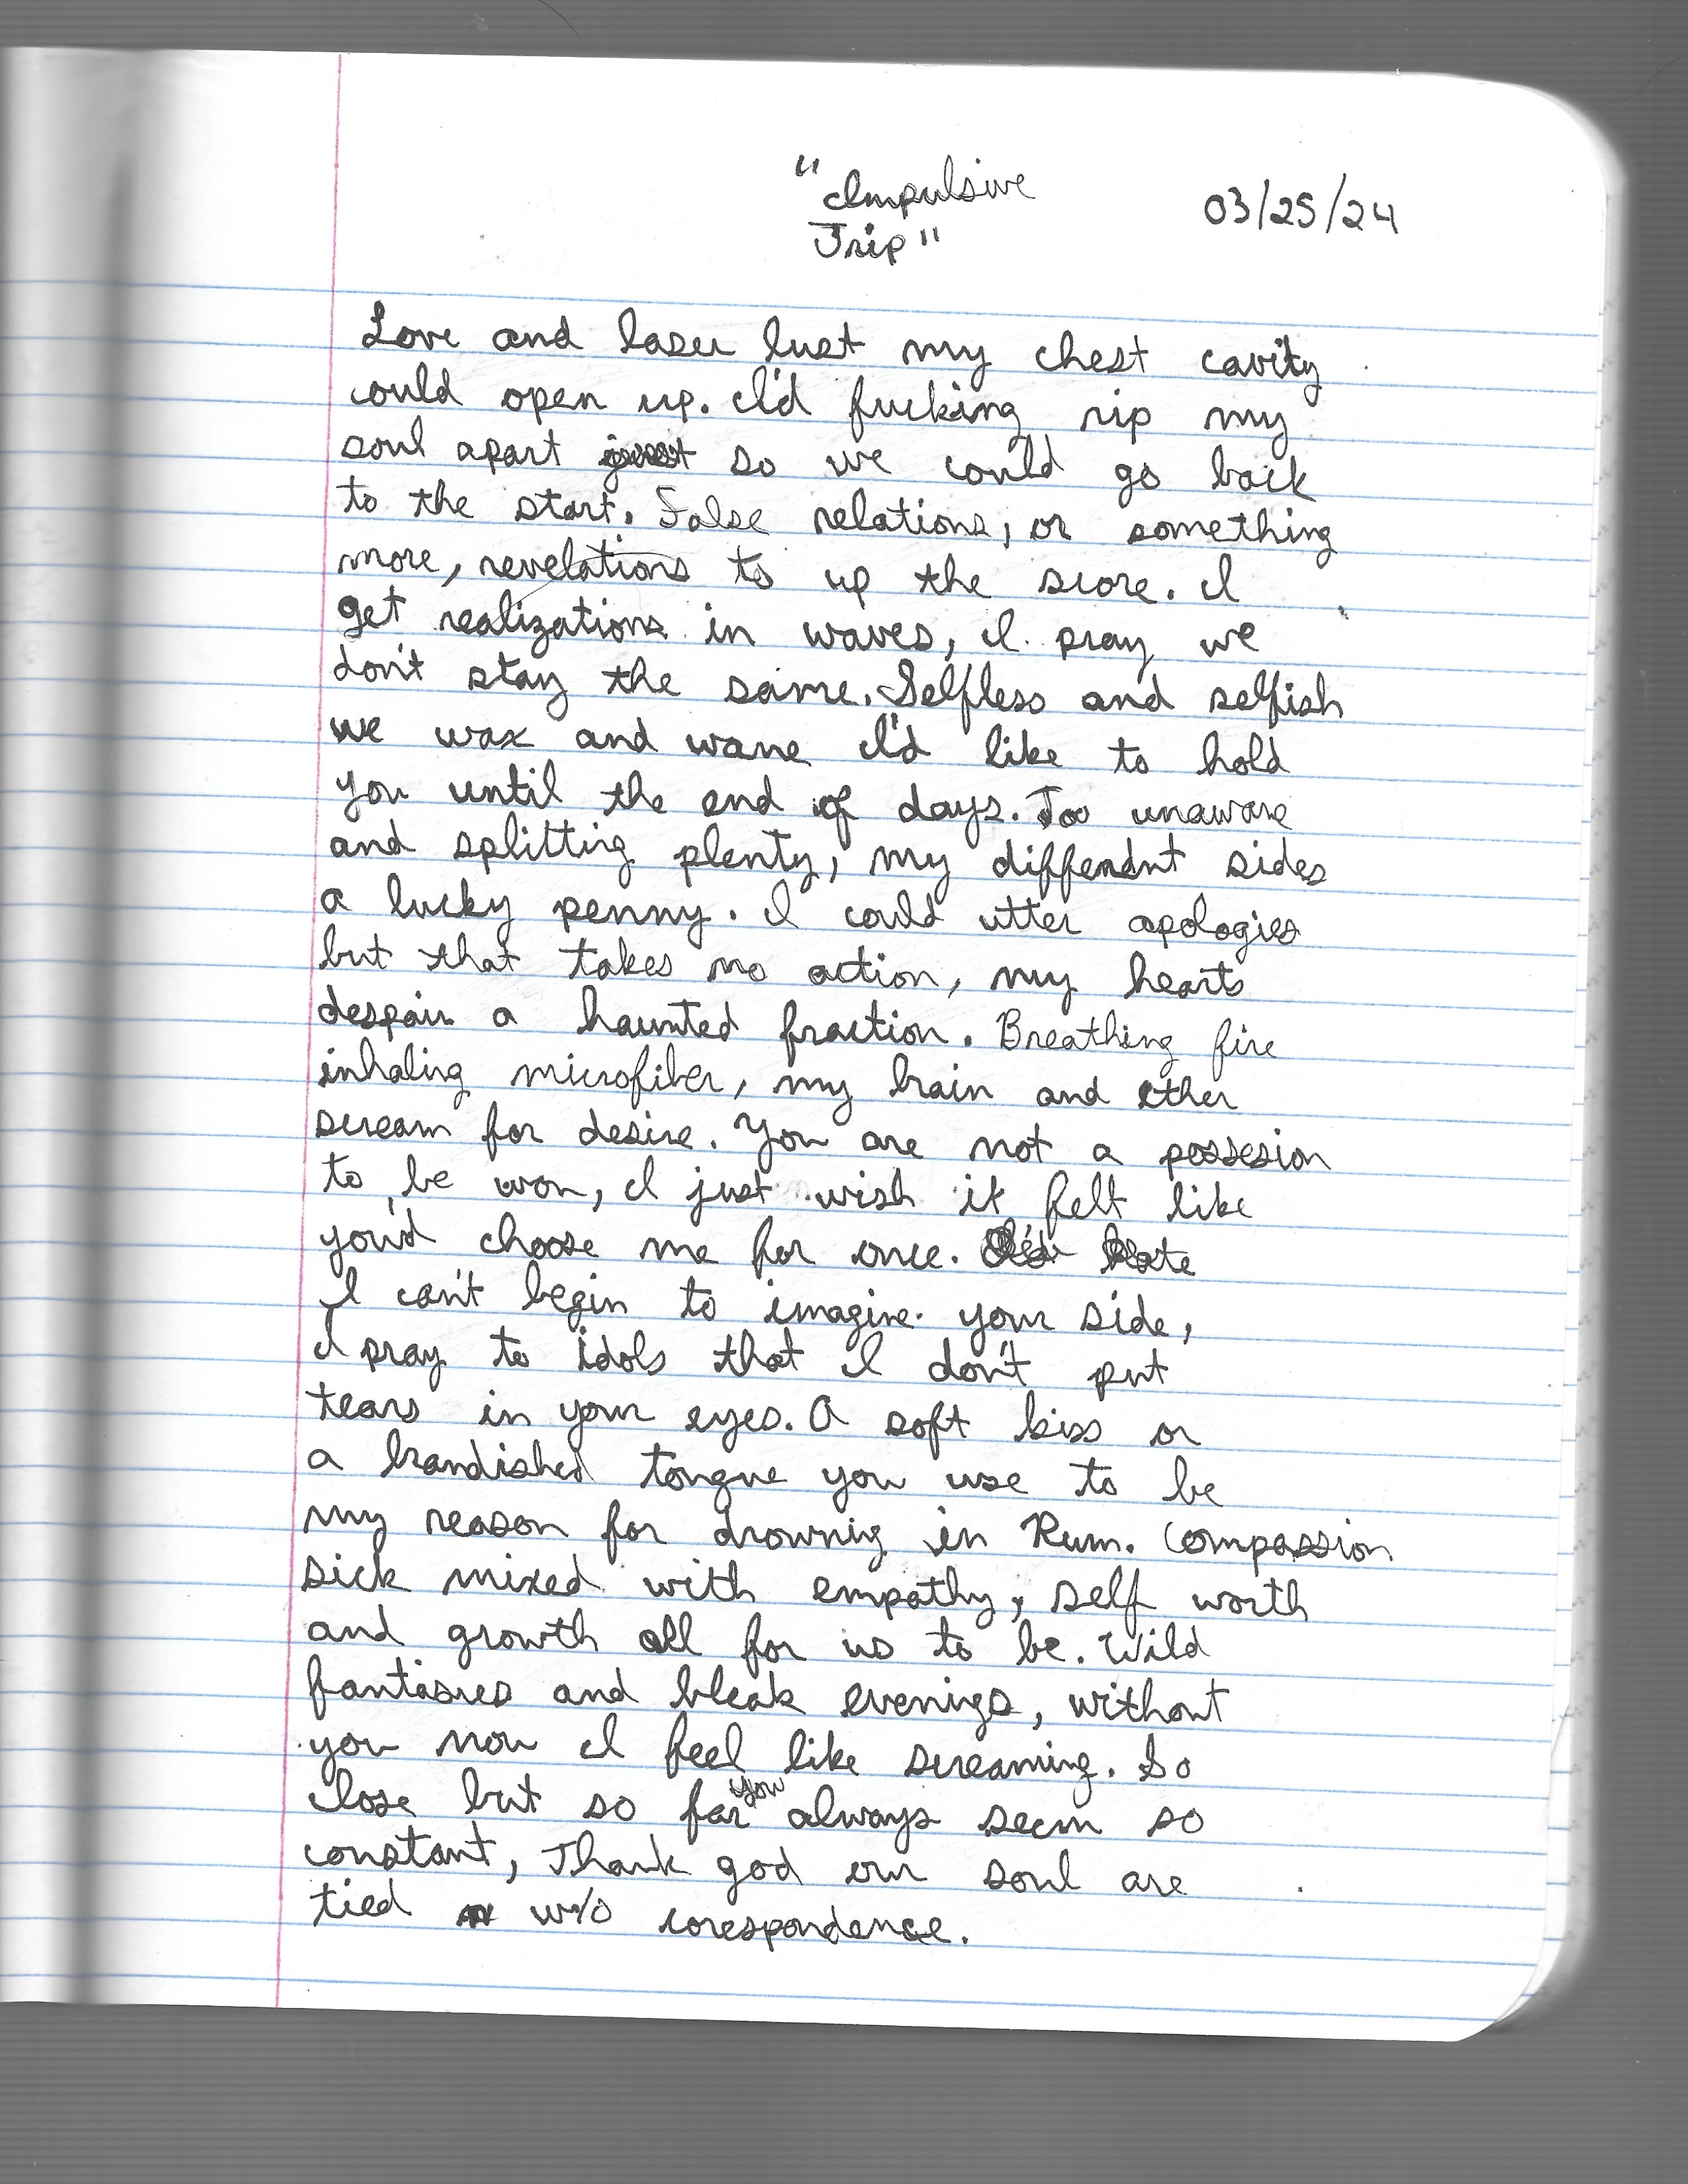 "Impulsive
Trip"
03/25/24
Love and laser lust my chest cavity
could open up. I'd fucking rip my
soul apart just so we could go back
to the start. False relations, or something
more, revelations to up the score. I
get realizations in waves, I pray we
don't stay the same. Selfless and selfish
we wax and wane I'd like to hold
you until the end of days. Too unaware
and splitting plenty, my different sides
a lucky penny. I could utter apologies
but that takes no action, my hearts
despair a haunted fraction. Breathing fire
inhaling microfiber, my brain and other
scream for desire. You are not a possesion
to be won, I just wish it felt like
you'd choose me for once.
I can't begin to imagine your side,
I pray to idols that I don't put
tears in your eyes. A soft kiss or
a brandished tongue you use to be
my reason for drowning in Rum. Compassion
sick mixed with empathy, self worth
and growth all for us to be. Wild
fantasies and bleak evenings, without
you now I feel like screaming. So
close but so far you always seem so
constant, Thank god our soul are
tied w/o corespondence.